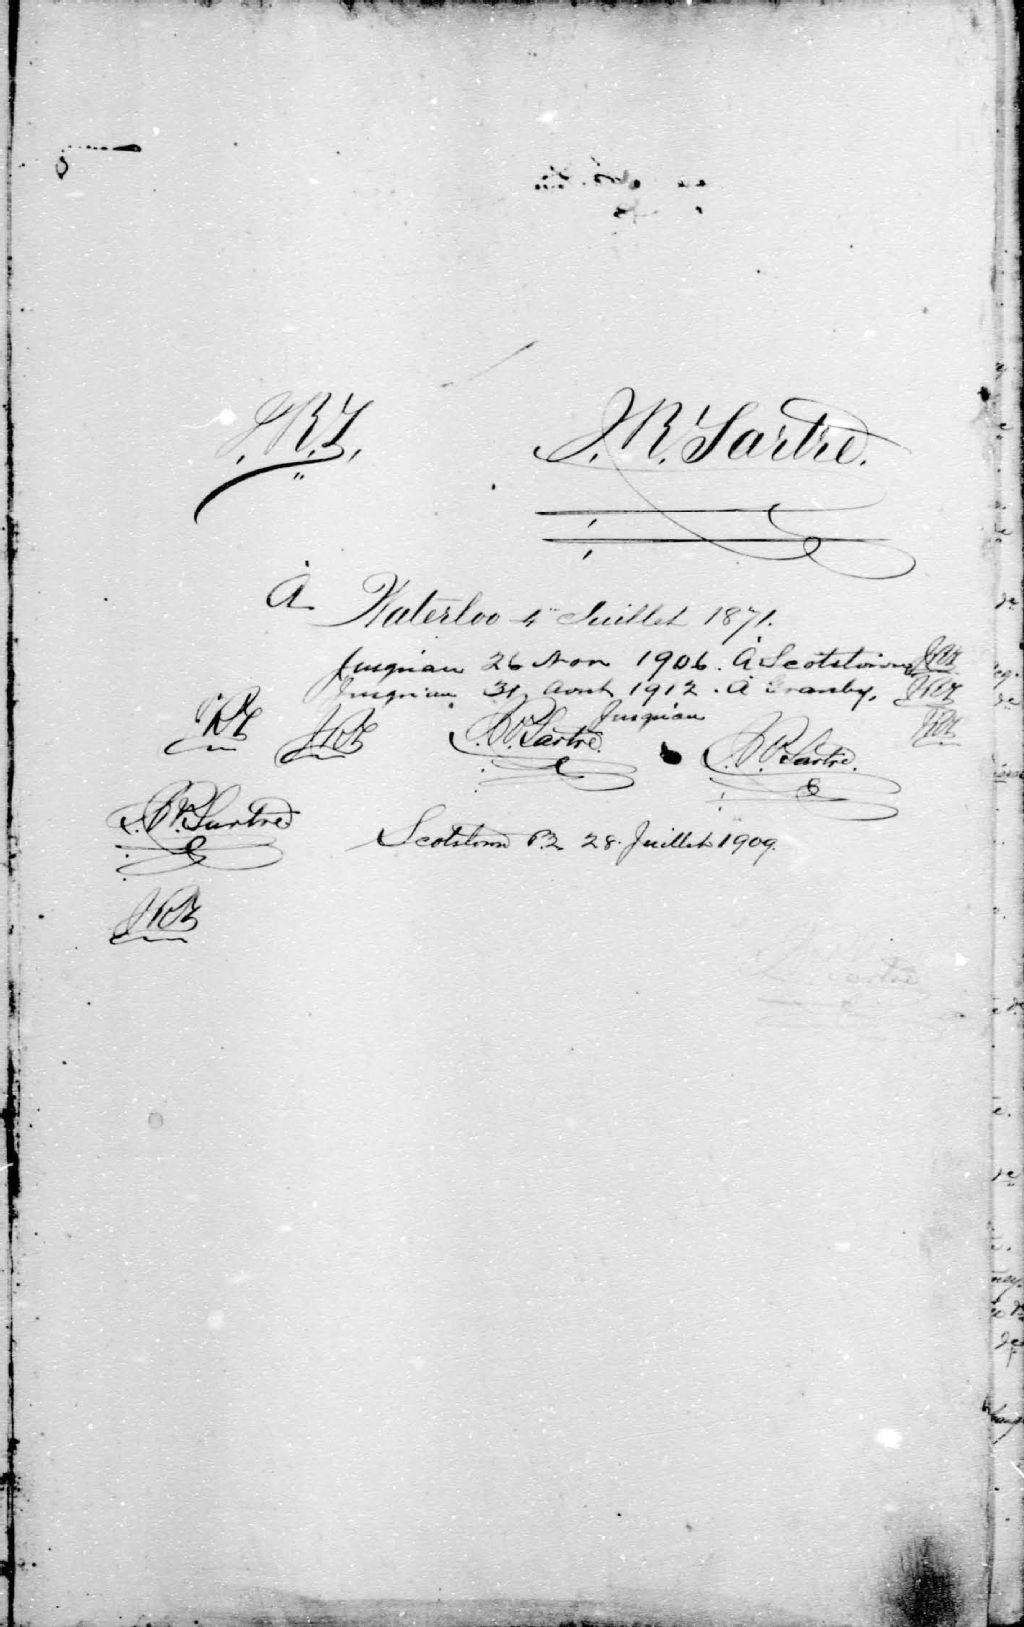 J.R.T. J. R. Tartre.
À Waterloo 4" Juillet 1871.
Jusqu'au 26 Nov 1906. À Scotstown JRT
Jusqu'au 31, Août 1912. À Granby, JRT
Jusqu'au
JRT JRT J.R. Tartre. J.R. Tartre. JRT
J.R. Tartre Scotstown P.Q 28. Juillet 1909.
JRT